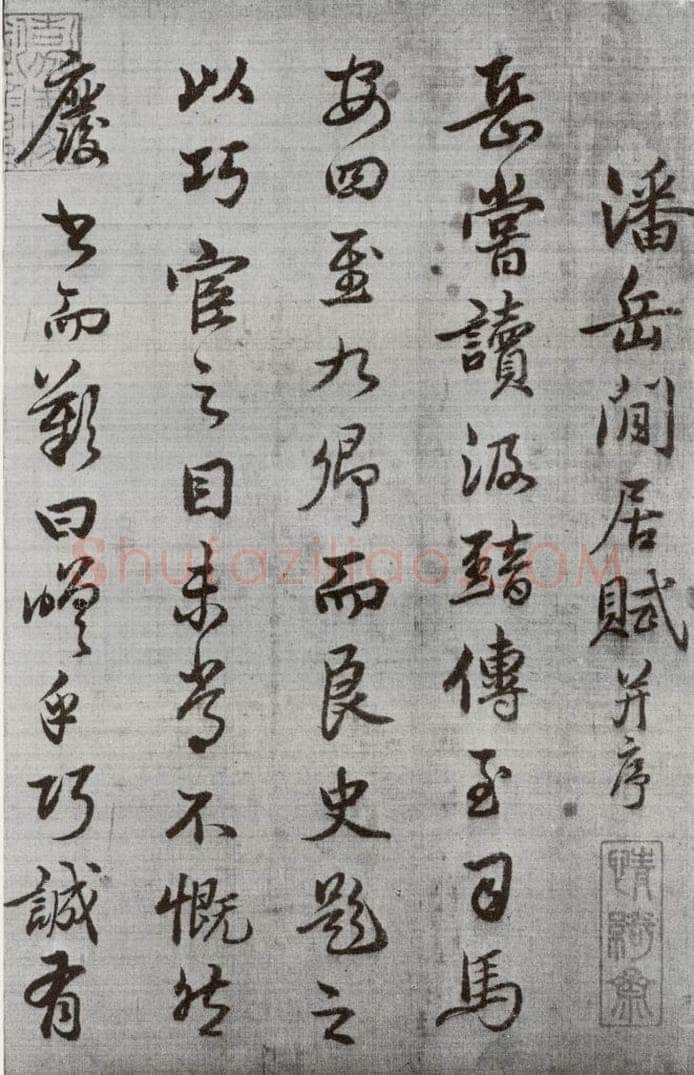 潘岳閒居賦并序
岳嘗讀汲黯傳至司馬
安四至九卿而良史題之
以巧宦之目未嘗不慨然
廢書而歎曰嗟乎巧誠有
Shufaziliao.COM